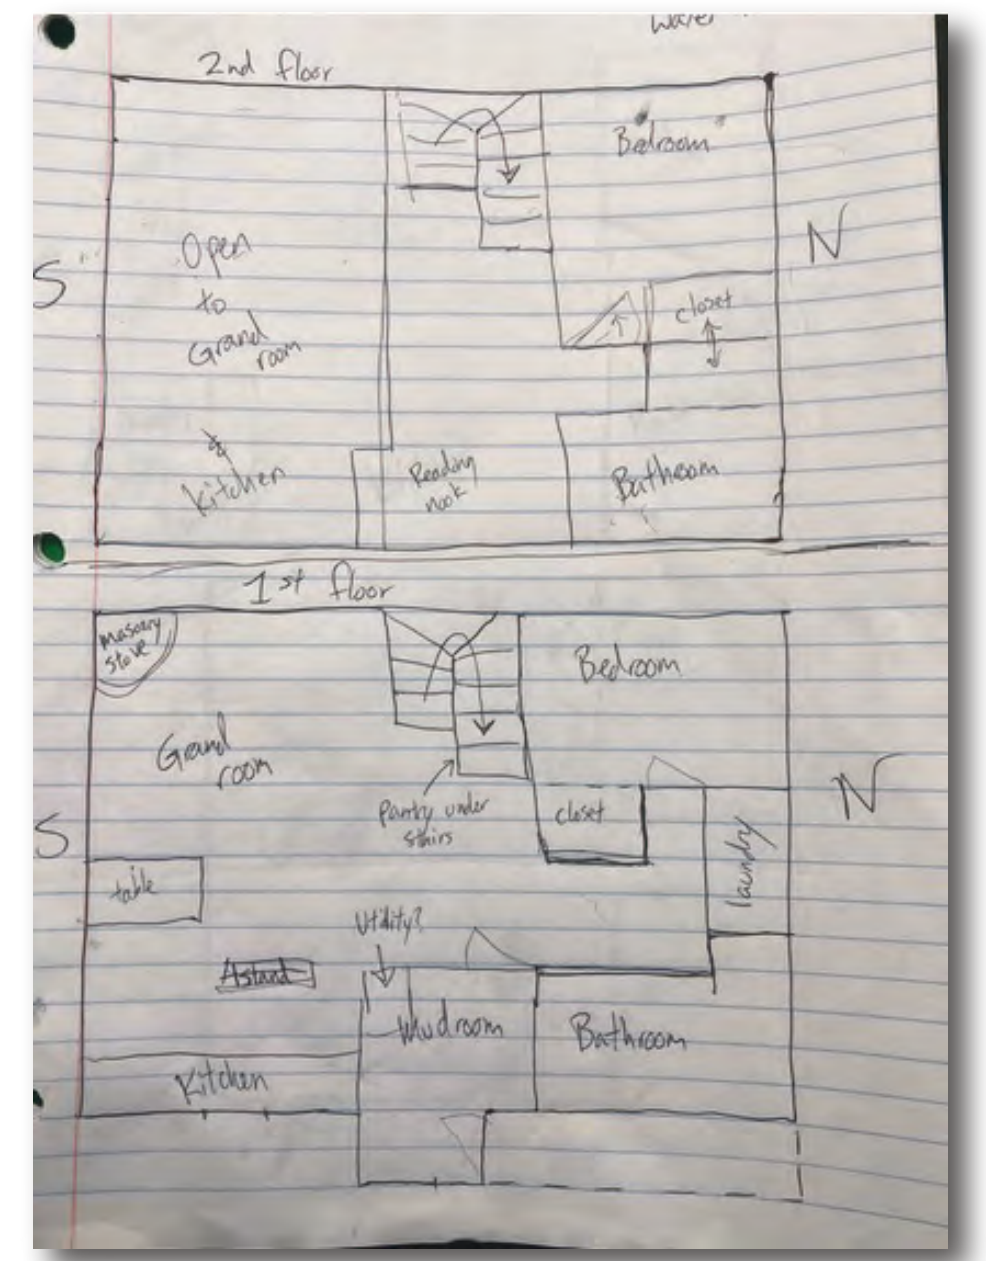 Water
2nd floor
Bedroom
N
Open
to
Grand
room
S
closet
&
Kitchen
Reading
nook
Bathroom
1st floor
masonry
stove
Bedroom
Grand
room
N
Pantry under
stairs
closet
S
laundry
table
Utility?
Island
Mudroom
Bathroom
Kitchen